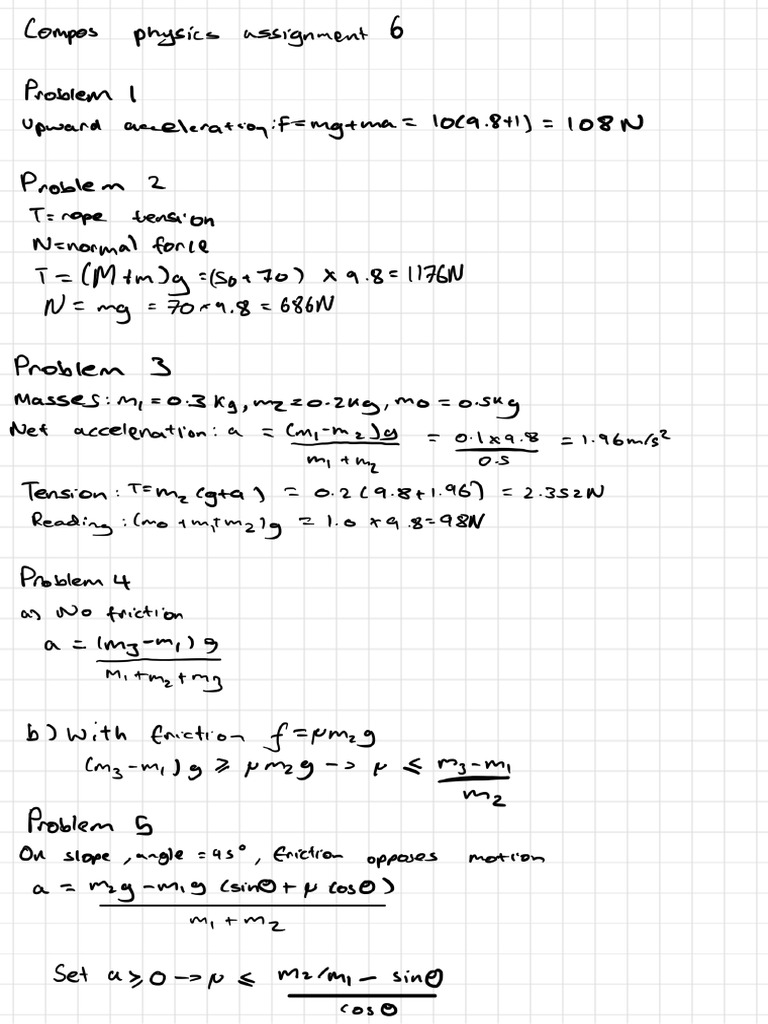 Compos physics assignment 6
Problem 1
Upward acceleration: f = mg + ma = 10(9.8+1) = 108 N
Problem 2
T = rope tension
N = normal force
T = (M+m)g = (50+70) × 9.8 = 1176N
N = mg = 70 × 9.8 = 686N
Problem 3
Masses: m₁ = 0.3 kg, m₂ = 0.2kg, m0 = 0.5kg
Net acceleration: a = (m₁-m₂)g / m₁+m₂ = 0.1×9.8 / 0.5 = 1.96m/s²
Tension: T = m₂(g+a) = 0.2(9.8+1.96) = 2.352N
Reading: (m0+m₁+m₂)g = 1.0 × 9.8 = 98N
Problem 4
a) No friction
a = (m3-m₁)g / m₁+m₂+m3
b) With friction f = μm₂g
(m3-m₁)g ⩾ μm₂g -> μ ⩽ m3-m₁ / m₂
Problem 5
On slope, angle = 45°, friction opposes motion
a = m₂g - m₁g (sinθ + μ cosθ) / m₁+m₂
Set a ⩾ 0 -> μ ⩽ m₂/m₁ - sinθ / cosθ